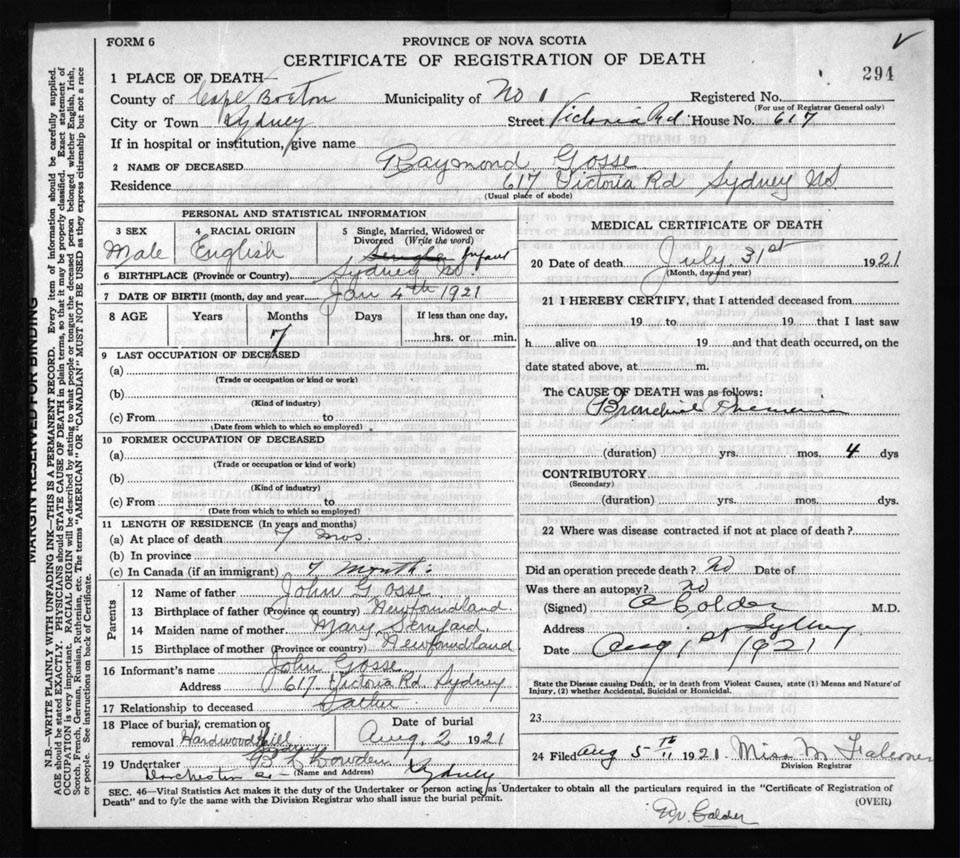 FORM 6
PROVINCE OF NOVA SCOTIA
CERTIFICATE OF REGISTRATION OF DEATH
294
1 PLACE OF DEATH—
County of Cape Breton Municipality of No 1 Registered No.
(For use of Registrar General only)
City or Town Sydney Street Victoria Rd. House No. 617
If in hospital or institution, give name
2 NAME OF DECEASED Raymond Gosse
Residence 617 Victoria Rd Sydney NS
(Usual place of abode)
PERSONAL AND STATISTICAL INFORMATION
3 SEX Male
4 RACIAL ORIGIN English
5 Single, Married, Widowed or Divorced (Write the word) Infant
6 BIRTHPLACE (Province or Country) Sydney NS.
7 DATE OF BIRTH (month, day and year) Jan 4th 1921
8 AGE Years Months Days If less than one day,
7 hrs. or min.
9 LAST OCCUPATION OF DECEASED
(a)
(Trade or occupation or kind or work)
(b)
(Kind of industry)
(c) From to
(Date from which to which so employed)
10 FORMER OCCUPATION OF DECEASED
(a)
(Trade or occupation or kind of work)
(b)
(Kind of industry)
(c) From to
(Date from which to which so employed)
11 LENGTH OF RESIDENCE (In years and months)
(a) At place of death 7 mos.
(b) In province
(c) In Canada (if an immigrant) 7 months
Parents
12 Name of father John Gosse
13 Birthplace of father (Province or country) Newfoundland
14 Maiden name of mother Mary
15 Birthplace of mother (Province or country) Newfoundland
16 Informant's name John Gosse
Address 617 Victoria Rd Sydney
17 Relationship to deceased Father
18 Place of burial, cremation or removal Hardwood Hill Sydney
Date of burial Aug. 2 1921
19 Undertaker
(Name and Address)
Dorchester St Sydney
MEDICAL CERTIFICATE OF DEATH
20 Date of death July 31st 1921
(Month, day and year)
21 I HEREBY CERTIFY, that I attended deceased from
19 to 19 that I last saw
h alive on 19 and that death occurred, on the
date stated above, at m.
The CAUSE OF DEATH was as follows:
Bronchial Pneumonia
(duration) yrs. mos. 4 dys
CONTRIBUTORY
(Secondary)
(duration) yrs. mos. dys.
22 Where was disease contracted if not at place of death?
Did an operation precede death? no Date of
Was there an autopsy? no
(Signed) Calder M.D.
Address Sydney
Date Aug 1st 1921
State the Disease causing Death, or in death from Violent Causes, state (1) Means and Nature of
Injury, (2) whether Accidental, Suicidal or Homicidal.
23
24 Filed Aug 5th 1921 Miss M Falconer
Division Registrar
SEC. 46—Vital Statistics Act makes it the duty of the Undertaker or person acting as Undertaker to obtain all the particulars required in the "Certificate of Registration of
Death" and to fyle the same with the Division Registrar who shall issue the burial permit. (OVER)
Dr. Calder
MARGIN RESERVED FOR BINDING
N.B.—WRITE PLAINLY WITH UNFADING INK—THIS IS A PERMANENT RECORD. Every item of information should be carefully supplied.
AGE should be stated EXACTLY. PHYSICIANS should STATE CAUSE OF DEATH in plain terms, so that it may be properly classified. Exact statement of
OCCUPATION is very important. RACIAL ORIGIN will be described by stating to what people or tongue the deceased person belonged whether English, Irish,
Scotch, French, German, Russian, Ruthenian, etc. The terms "AMERICAN" OR "CANADIAN" MUST NOT BE USED as they express citizenship but not a race
or people. See instructions on back of Certificate.